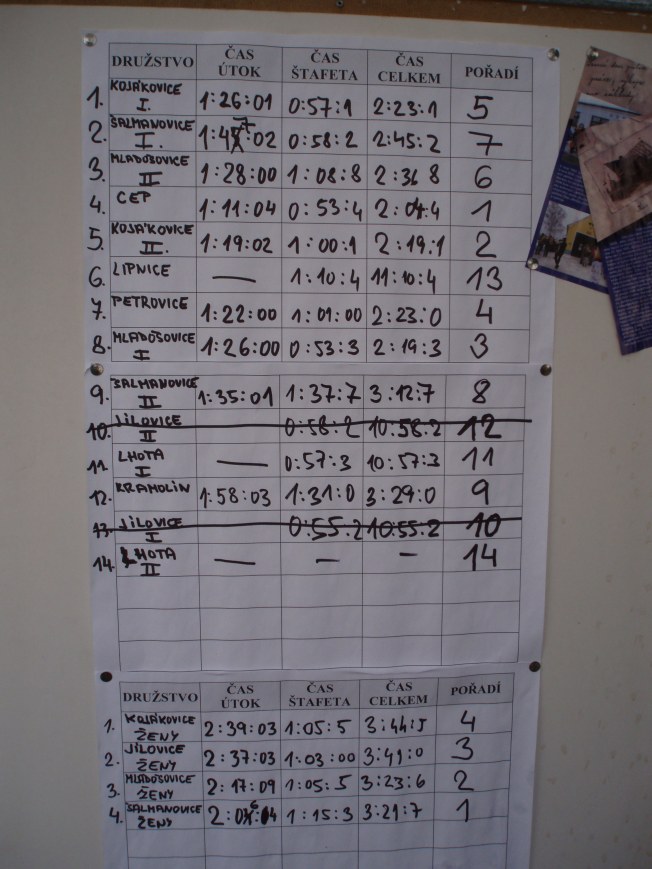 DRUŽSTVO ČAS ÚTOK ČAS ŠTAFETA ČAS CELKEM POŘADÍ
1. KOJÁKOVICE I. 1:26:01 0:57:1 2:23:1 5
2. ŠALMANOVICE I. 1:47:02 0:58:2 2:45:2 7
3. MLADOŠOVICE II 1:28:00 1:08:8 2:36 8 6
4. CEP 1:11:04 0:53:4 2:04:4 1
5. KOJÁKOVICE II. 1:19:02 1:00:1 2:19:1 2
6. LIPNICE — 1:10:4 11:10:4 13
7. PETROVICE 1:22:00 1:01:00 2:23:0 4
8. MLADOŠOVICE I 1:26:00 0:53:3 2:19:3 3
9. ŠALMANOVICE II 1:35:01 1:37:7 3:12:7 8
10. JÍLOVICE II 0:58:2 10:58:2 12
11. LHOTA I — 0:57:3 10:57:3 11
12. KRAMOLÍN 1:58:03 1:31:0 3:29:0 9
13. JÍLOVICE I 0:55.2 10:55.2 10
14. LHOTA II — — — 14
DRUŽSTVO ČAS ÚTOK ČAS ŠTAFETA ČAS CELKEM POŘADÍ
1. KOJÁKOVICE ŽENY 2:39:03 1:05:5 3:44:5 4
2. JÍLOVICE ŽENY 2:37:03 1:03:00 3:41:0 3
3. MLADOŠOVICE ŽENY 2:17:09 1:05:5 3:23:6 2
4. ŠALMANOVICE ŽENY 2:06:04 1:15:3 3:21:7 1